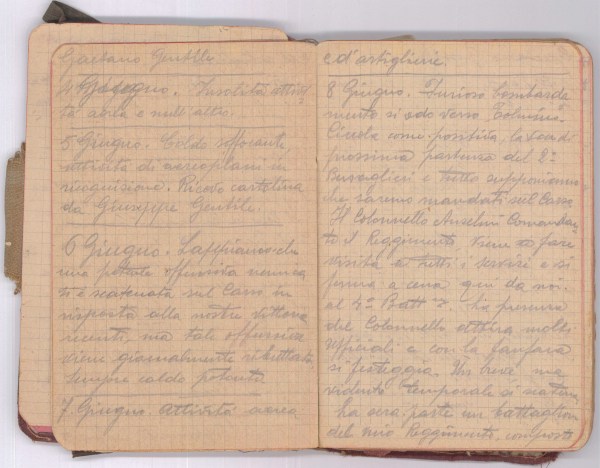 Gaetano Gentile.
4 Giugno. Insolita attivi
tà aerea e null'altro.
5 Giugno. Caldo soffocante,
attività di aeroplani in
ricognizione. Ricevo cartolina
da Giuseppe Gentile.
6 Giugno. Sappiamo che
una potente offensiva nemica
si è scatenata sul Carso in
risposta alla nostra vittoria
recente, ma tale offensiva
viene giornalmente ributtata,
sempre caldo potente
7 Giugno. Attività aerea
e d'artiglierie.
8 Giugno. Furioso bombarda
mento si ode verso Tolmino.
Circola come positiva, la voce di
prossima partenza del 2º
Bersaglieri e tutti supponiamo
che saremo mandati sul Carso
Il Colonnello Anselmi Comandan
te il Reggimento, viene a fare
visita a tutti i servizi e si
ferma a cena qui da noi.
al 4º Batt
La presenza
del Colonnello attira molti
Ufficiali e con la fanfara
si festeggia. Un breve ma
violento temporale si scatena,
La sera parte un battaglione
del mio Reggimento, composto